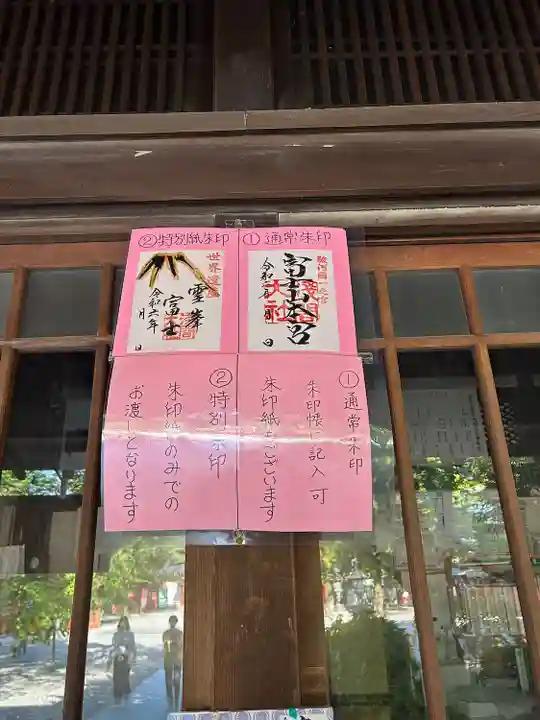 ①通常朱印
駿河國一之宮
富士山本宮
浅間
大社
令和六年 月 日
②特別紙朱印
世界遺産
霊峰
富士
令和六年
月 日
①通常朱印
朱印帳に記入可
朱印紙もございます
②特別朱印
朱印紙のみでの
お渡しとなります